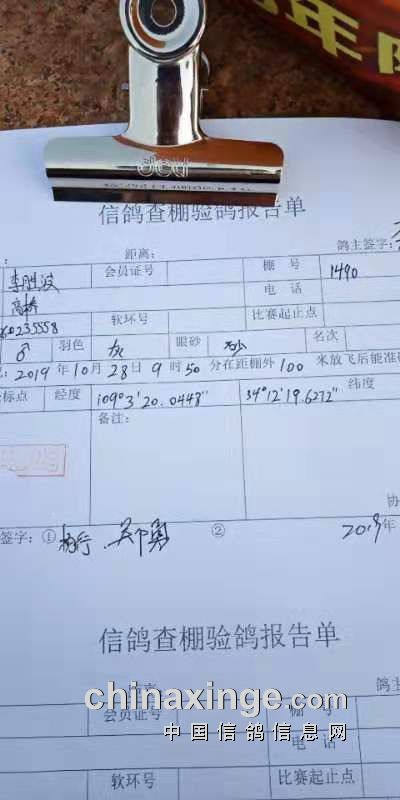 年
信鸽查棚验鸽报告单
距离: 鸽主签字:
李胜波 会员证号 棚号 1490
高桥 电话
60235558 软环号 比赛起止点
♂ 羽色 灰 眼砂 砂 名次
: 2019 年 10 月 28 日 9 时 50 分在距棚外 100 米放飞后能准
标点 经度 109°3'20.0448" 34°12'19.6272" 纬度
备注:
协
签字: ① ②
2019 年
信鸽查棚验鸽报告单
距离: 鸽主
会员证号 棚号
电话
软环号 比赛起止点
chinaxinge.com
中国信鸽信息网